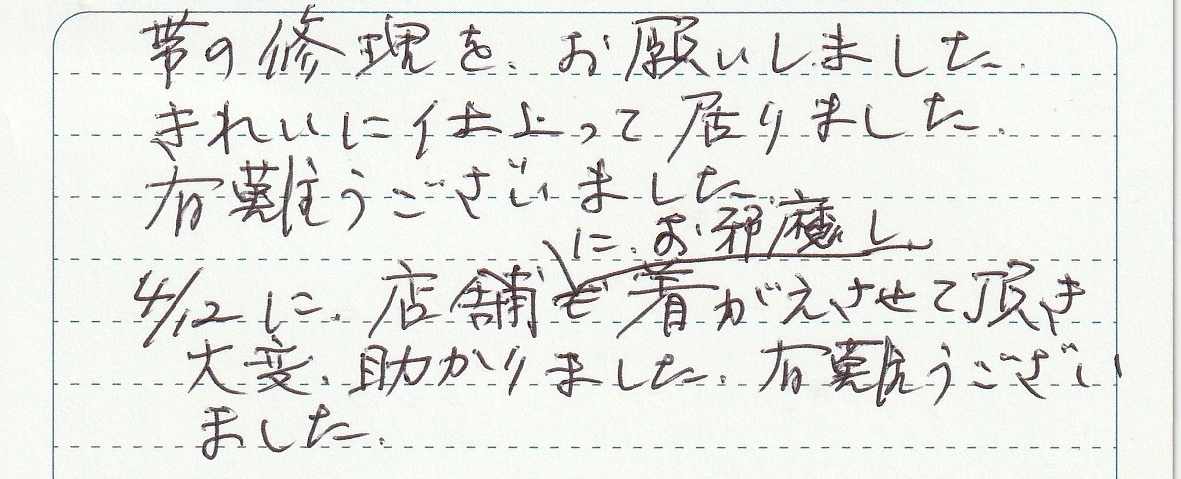 帯の修理を、お願いしました。
きれいに仕上って居りました。
有難うございました。
に、お邪魔し
4/12に、店舗で着がえさせて頂き
大変、助かりました。有難うござい
ました。